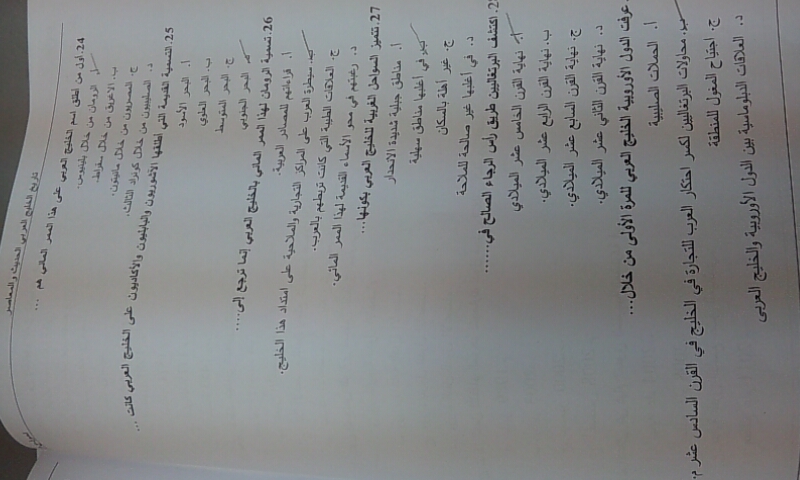 تاريخ الخليج العربي الحديث والمعاصر
24. أول من أطلق اسم الخليج العربي على هذا الممر المائي هم ...
أ. الرومان من خلال بلينيوس.
ب. الاغريق من خلال بقراط.
ج. المصريون من خلال مانيتون.
د. الصليبيون من خلال كونراد الثالث.
25. التسمية القديمة التي أطلقها الآشوريون والبابليون والأكاديون على الخليج العربي كانت ...
أ. البحر الأسود
ب. البحر العلوي
ج. البحر المتوسط
د. البحر الجنوبي
26. تسمية الرومان لهذا الممر المائي بالخليج العربي إنما ترجع إلى....
أ. قراءاتهم للمصادر العربية.
ب. سيطرة العرب على المراكز التجارية والملاحية على امتداد هذا الخليج.
ج. العلاقات الطيبة التي كانت تربطهم بالعرب.
د. رغبتهم في محو الأسماء القديمة لهذا الممر المائي.
27. تتميز السواحل العربية للخليج العربي بكونها...
أ. مناطق جبلية شديدة الانحدار
ب. في أغلبها مناطق سهلية
ج. غير آهلة بالسكان
د. في أغلبها غير صالحة للملاحة
اكتشف البرتغاليين طريق رأس الرجاء الصالح في.......
أ. نهاية القرن الخامس عشر الميلادي
ب. نهاية القرن الرابع عشر الميلادي.
ج. نهاية القرن السابع عشر الميلادي.
د. نهاية القرن الثاني عشر الميلادي.
عرفت الدول الأوروبية الخليج العربي للمرة الأولى من خلال...
أ. الحملات الصليبية
ب. محاولات البرتغاليين لكسر احتكار العرب للتجارة في الخليج في القرن السادس عشر م.
ج. اجتياح المغول للمنطقة
د. العلاقات الدبلوماسية بين الدول الأوروبية والخليج العربي